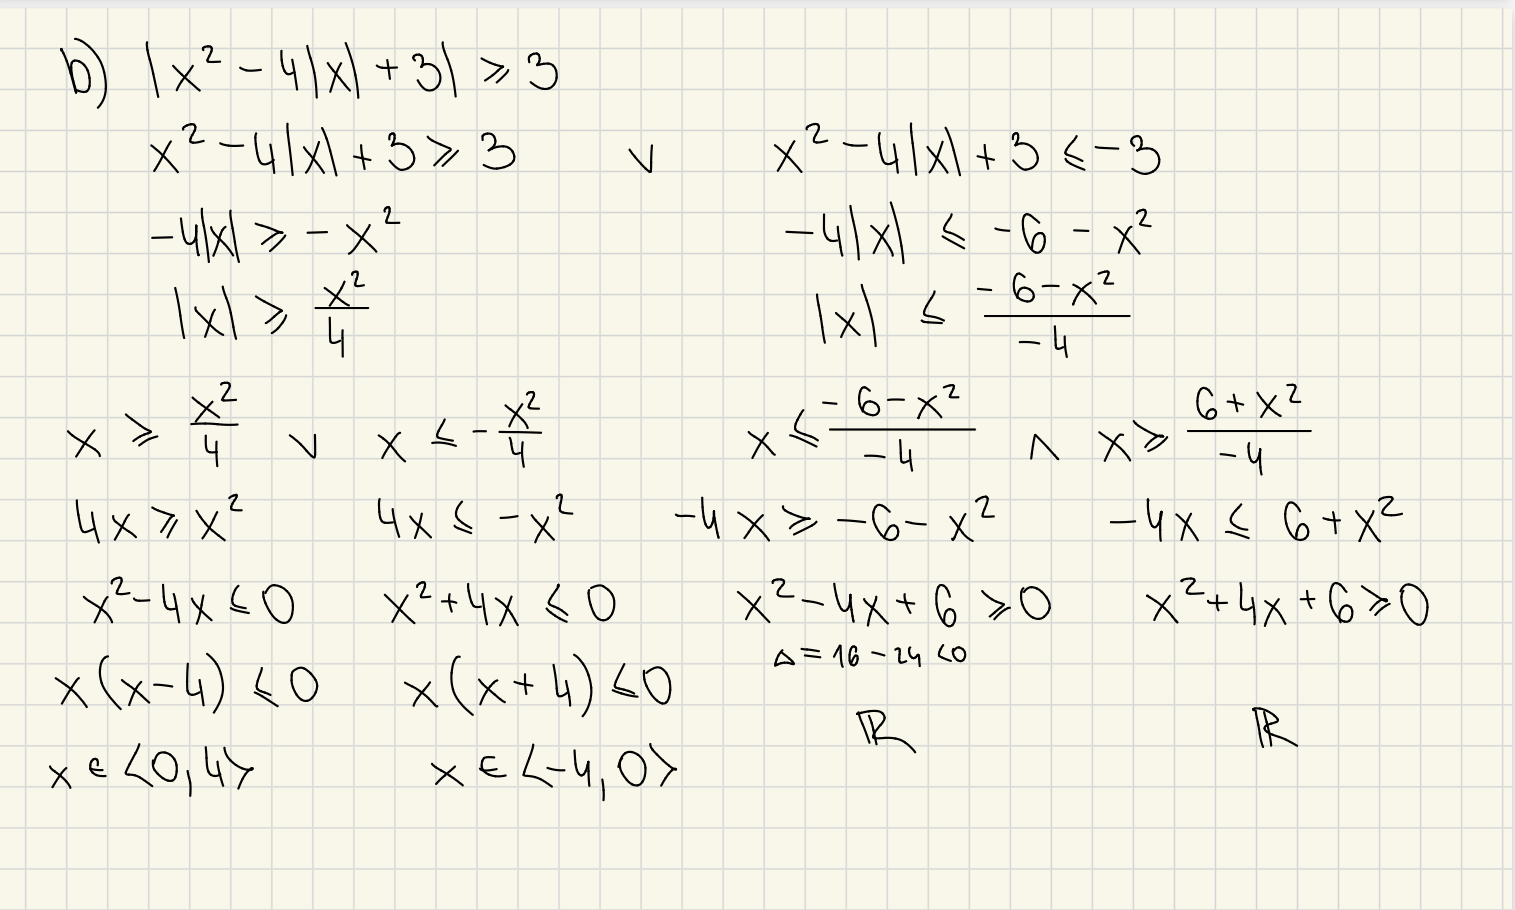 b) |x² - 4|x| + 3| ⩾ 3
x² - 4|x| + 3 ⩾ 3 ∨ x² - 4|x| + 3 ⩽ -3
-4|x| ⩾ - x² -4|x| ⩽ -6 - x²
|x| ⩾ x²/4 |x| ⩽ (-6-x²)/(-4)
x ⩾ x²/4 ∨ x ⩽ -x²/4 x ⩽ (-6-x²)/(-4) ∧ x ⩾ (6+x²)/(-4)
4x ⩾ x² 4x ⩽ -x² -4x ⩾ -6-x² -4x ⩽ 6+x²
x²-4x ⩽ 0 x²+4x ⩽ 0 x²-4x+6 ⩾ 0 x²+4x+6 ⩾ 0
Δ = 16 - 24 < 0
x(x-4) ⩽ 0 x(x+4) ⩽ 0 ℝ ℝ
x ∈ <0,4> x ∈ <-4,0>